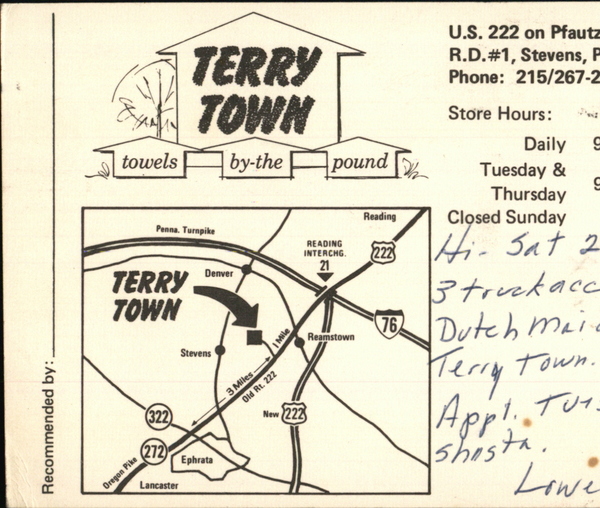 TERRY
TOWN
towels by-the pound
U.S. 222 on Pfautz
R.D.#1, Stevens, P
Phone: 215/267-2
Store Hours:
Daily 9
Tuesday &
Thursday 9
Closed Sunday
Recommended by:
Penna. Turnpike
Reading
READING
INTERCHG.
21
222
Denver
TERRY
TOWN
76
Reamstown
1 Mile
Stevens
3 Miles
Old Rt. 222
322
New 222
272
Ephrata
Oregon Pike
Lancaster
Hi- Sat 2
3 truck acc
Dutch Mai
Terry Town.
Appl. Tur
shasta.
Lowe